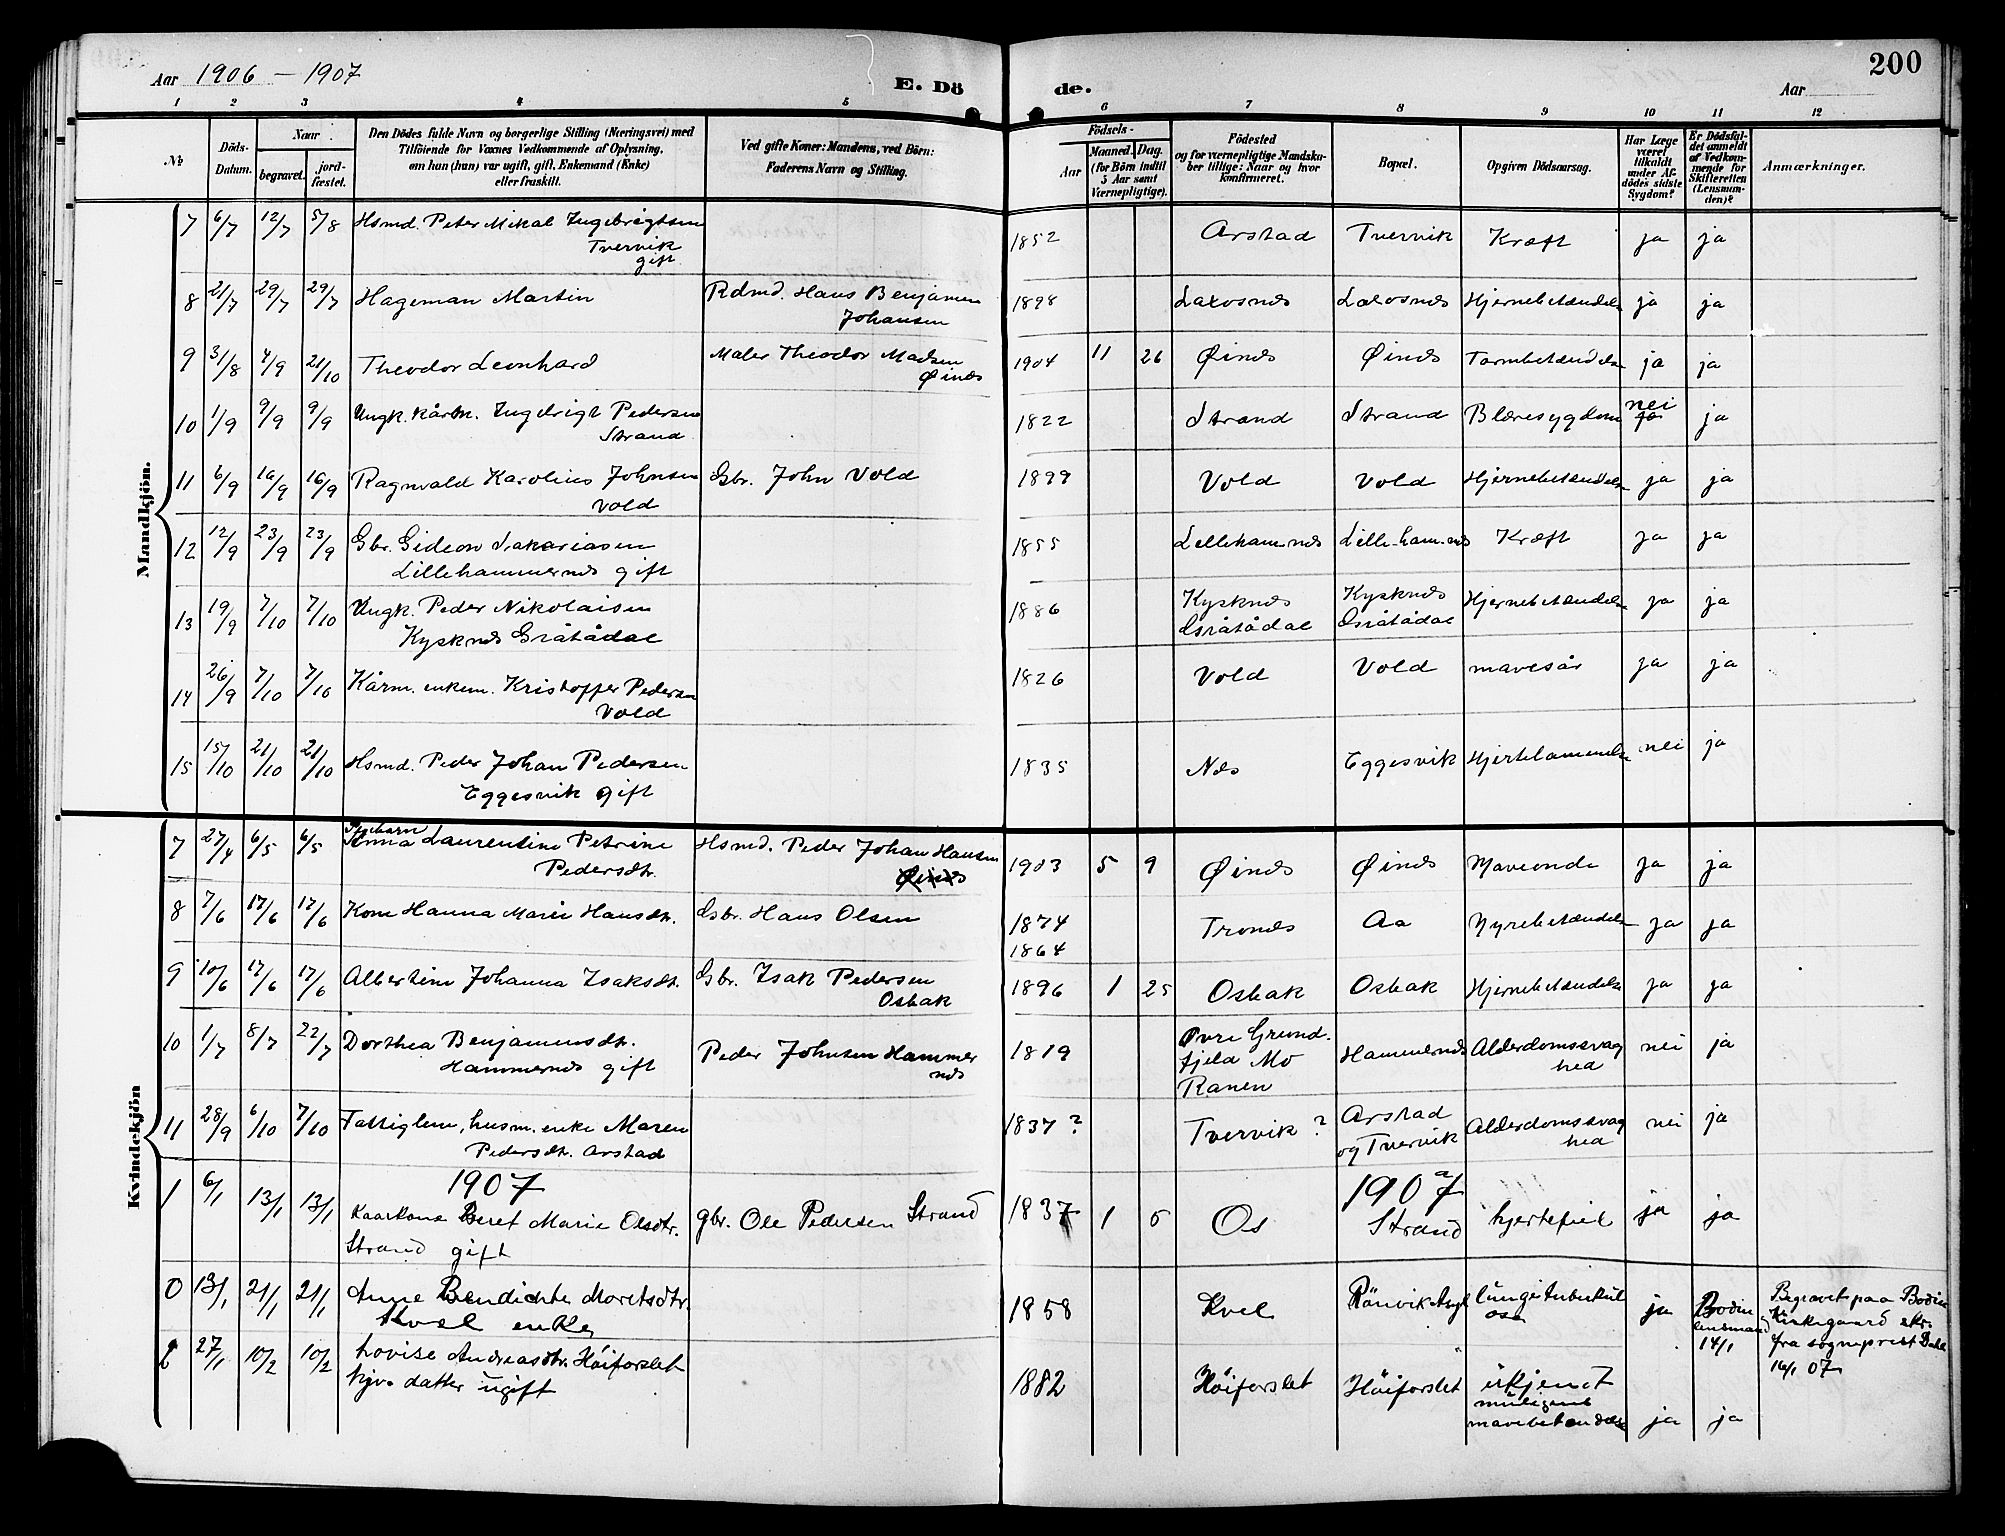 200
Aar 1906 - 1907
E. Dö de.
Aar
1 2 3 4 5 6 7 8 9 10 11 12
No
Döds-Datum.
Naar
begravet.
jord-fæstet.
Den Dödes fulde Navn og borgerlige Stilling (Næringsvei) med
Tilföiende for Voxnes Vedkommende af Oplysning,
om han (hun) var ugift, gift, Enkemand (Enke)
eller fraskilt.
Ved gifte Koner: Mandens, ved Börn:
Faderens Navn og Stilling.
Födsels-
Aar
Maaned. Dag.
(for Börn indtil
5 Aar samt
Værnepligtige).
Födested
og for værnepligtige Mandska-
ber tillige: Naar og hvor
konfirmeret.
Bopæl.
Opgiven Dödsaarsag.
Har Læge
været
tilkaldt
under Af-
dödes sidste
Sygdom?
Er Dödsfal-
det anmeldt
af Vedkom-
mende for
Skifteretten
(Lensman-
den)?
Anmærkninger.
Mandkjön.
7 6/7 12/7 5/8 Hsmd. Peter Mikal Ingebrigtsen
Tvervik
gift
1852 Arstad Tvervik Kræft ja ja
8 21/7 29/7 29/7 Hageman Martin Rdmd. Hans Benjamin
Johansen
1898 Laxosnæs Laxosnæs Hjernebetændelse ja ja
9 31/8 4/9 21/10 Theodor Leonhard Maler Theodor Madsen
Øinæs
1904 11 26 Øinæs Øinæs Tarmbetændelse ja ja
10 1/9 9/9 9/9 Ungk. kårm. Ingebrigt Pedersen
Strand
1822 Strand Strand Blæresygdom nei ja ja
11 6/9 16/9 16/9 Ragnvald Karolius Johnsen Gbr. John Vold
Vold
1899 Vold Vold Hjernebetændelse ja ja
12 12/9 23/9 23/9 Gbr. Gideon Sakariasen
Lillehammernæs gift
1855 Lilleham.næs Lille-ham.næs Kræft ja ja
13 19/9 7/10 7/10 Ungk. Peder Nikolaisen
Kysknæs Gråtådal
1886 Kysknæs
Gråtådal
Kysknæs
Gråtådal
Hjernebetændelse ja ja
14 26/9 7/10 7/10 Kårm. enkem. Kristoffer Pedersen
Vold
1826 Vold Vold mavesår ja ja
15 15/10 21/10 21/10 Hsmd. Peder Johan Pedersen
Eggesvik gift
1835 Næs Eggesvik Hjertelammelse nei ja
Kvindekjön
7 27/4 6/5 6/5 Anna Laurentine Petrine Hsmd. Peder Johan Hansen
Pedersdtr. Øinæs
1903 5 9 Øinæs Øinæs Maveonde ja ja
8 7/6 17/6 17/6 Kone Hanna Marie Hansdtr. Gbr. Hans Olsen
1874 Tronæs Aa Nyrebetændelse ja ja
1864
9 10/6 17/6 17/6 Albertine Johanna Isaksdt. Gbr. Isak Pedersen
Osbak
1896 1 25 Osbak Osbak Hjernebetændelse ja ja
10 1/7 8/7 22/7 Dorthea Benjaminsdtr. Peder Johnsen Hammer
Hammernæs gift næs
1819 Øvre Grund-
fjeld Mo
Ranen
Hammernæs Alderdomssvag
hed
nei ja
11 28/9 6/10 7/10 Fattiglem, husm. enke Maren
Pedersdtr. Arstad
1837? Tvervik? Arstad
og Tvervik
Alderdomssvag
hed
nei ja
1907 1907
1 6/1 13/1 13/1 Kaarkone Beret Marie Olsdtr. gbr. Ole Pedersen Strand
Strand gift
1837 1 6 Os Strand hjertefeil ja ja
0 13/1 21/1 21/1 Anne Bendichte Moritsdtr.
Kvel enke
1858 Kvel Rönvik Asyl lungetuberkul
ose
ja Bodin
lensmand
14/1
Begravet paa Bodin
Kirkegaard skr.
fra sogneprest Dahl
16/1 07
2 27/1 10/2 10/2 Lovise Andreasdtr. Höiforslet
tjv. datter ugift
1882 Höiforslet Höiforslet ukjendt
muligens
mavebetændelse ja ja